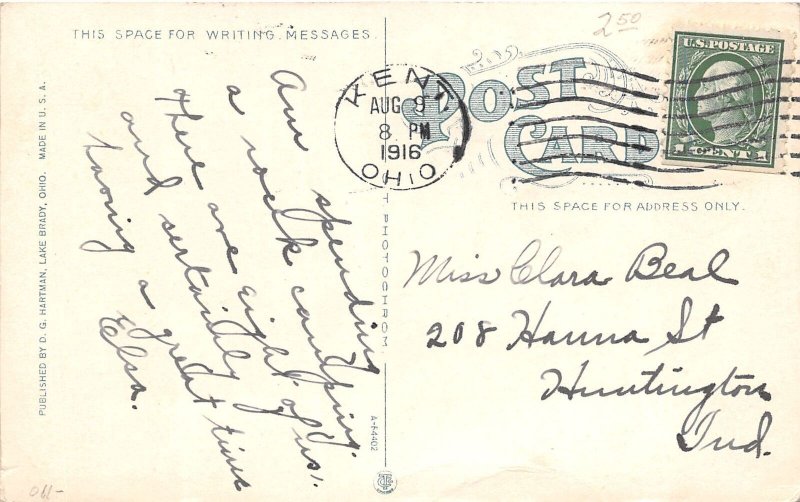 THIS SPACE FOR WRITING MESSAGES
2 50
POST CARD
KENT
AUG 9
8 PM
1916
OHIO
U.S. POSTAGE
1 CENT 1
THIS SPACE FOR ADDRESS ONLY.
Am spending
a week camping.
there are eight of us,
and sertainly
having a great time
Elsa.
Miss Clara Beal
208 Hanna St
Huntington
Ind.
PUBLISHED BY D. G. HARTMAN, LAKE BRADY, OHIO. MADE IN U. S. A.
T PHOTOCHROM
A-64402
011-